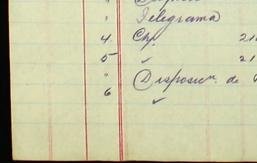 " Telegrama
4 Chp. 21
5 " 21
" Disposicn. de
6 "